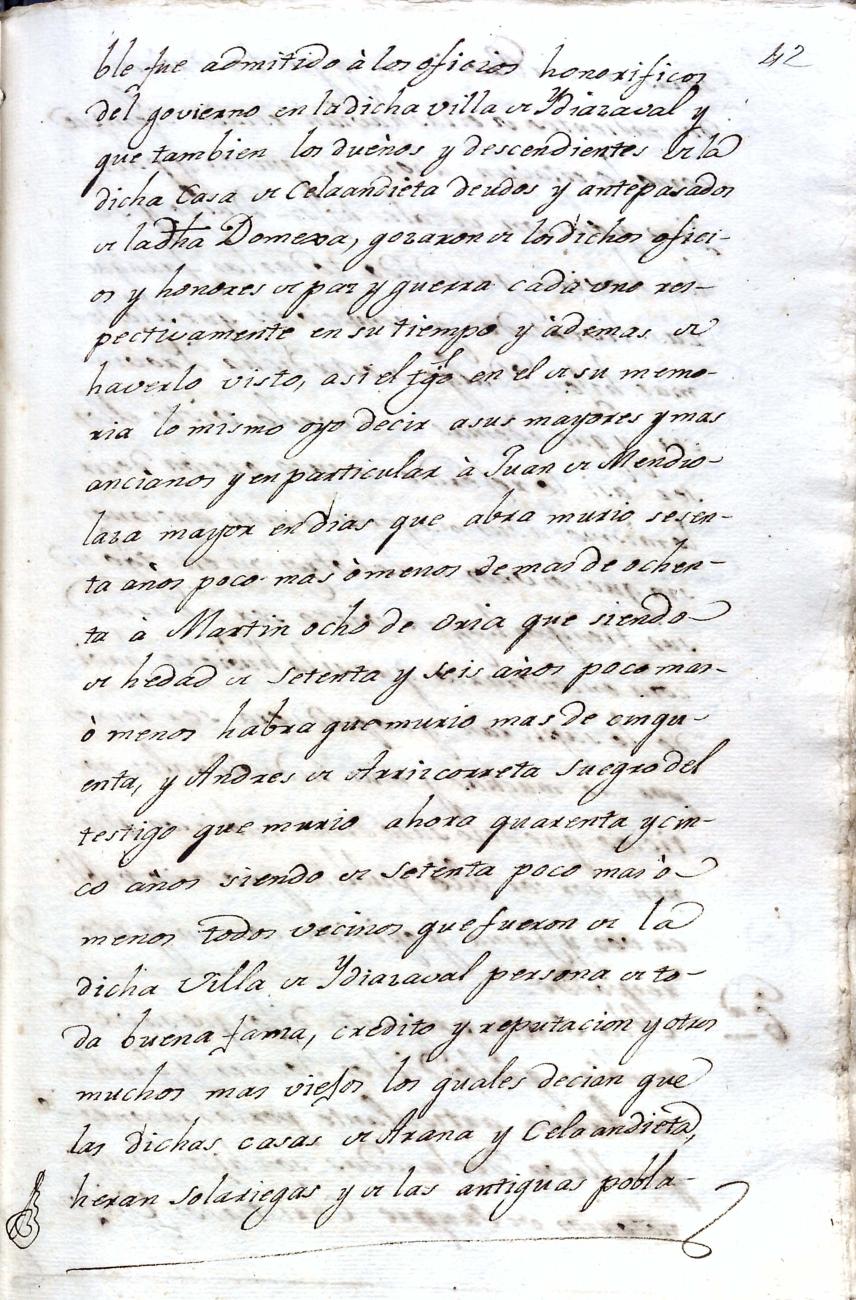 42
ble fue admitido à los oficios honorificos
del govierno en la dicha villa de Ydiazaval y
que tambien los dueños y descendientes de la
dicha Casa de Celaandieta deudos y antepasados
de la dha Domexa, gozaron de los dichos ofici-
os y honores de paz y guerra cada uno res-
pectivamente en su tiempo y àdemas de
haverlo visto, asi el tgo en el de su memo-
ria lo mismo oyo decir asus mayores y mas
ancianos y en particular à Juan de Mendio-
laza mayor en dias que abra murio sesen-
ta años poco mas òmenos de mas de ochen-
ta à Martin ocho de oria que siendo
de hedad de setenta y seis años poco mas
ò menos habra que murio mas de cinqu-
enta, y Andres de Arrizcorreta suegro del
testigo que murio ahora quarenta y cin-
co años siendo de setenta poco mas ò
menos todos vecinos que fueron de la
dicha Villa de Ydiazaval persona de to-
da buena fama, credito y reputacion y otros
muchos mas viejos los quales decian que
las dichas casas de Arana y Celaandieta,
heran solariegas y de las antiguas pobla-